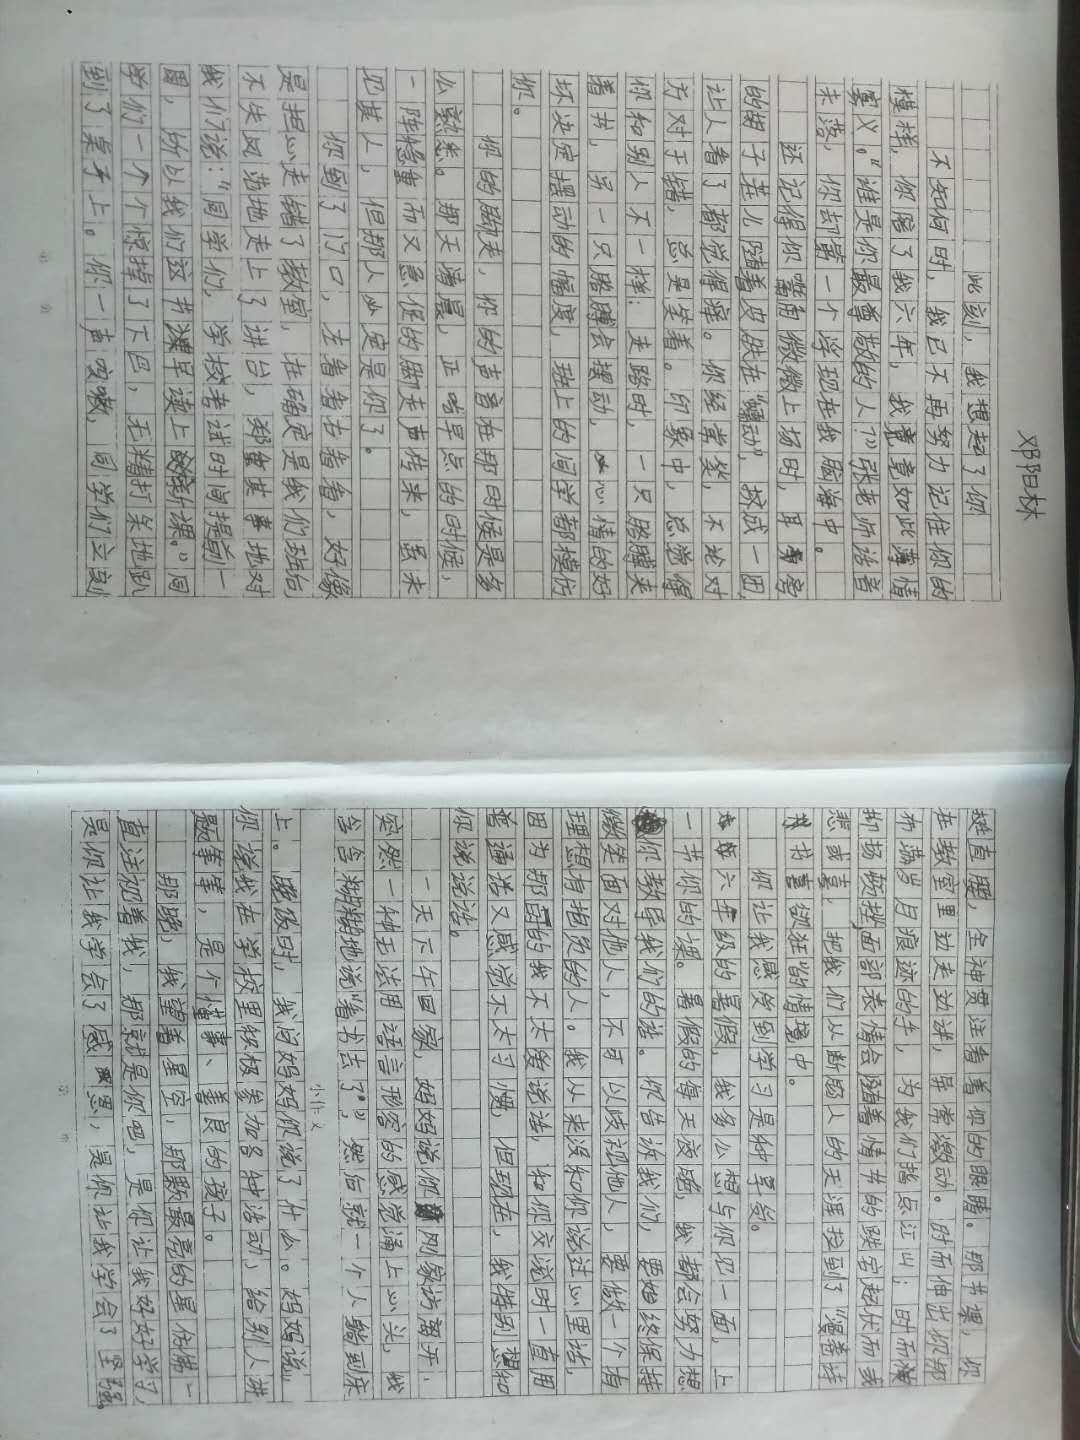 邓阳林
此刻，我想起了你
不知何时，我已不再努力记住你的
模样，你陪了我六年，我竟竟如此薄情
寡义。“谁是你最尊敬的人？”张老师话音
未落，你却第一个浮现在我脑海中。
还记得你嘴角微微上扬时，耳旁
的胡子茬儿随着皮肤在“蠕动”，挤成一团，
让人看了都觉得痒。你经常笑，不论对
为对于错，总是笑着。印象中，总觉得
你和别人不一样：走路时，一只胳膊夹
着书，另一只胳膊会摆动，心情的好
坏决定摆动的幅度，班上的同学都模仿
你。
你的脚步，你的声音在那时候是多
么熟悉。那天清晨，正啃早点的时候，
一阵稳重而又急促的脚步声传来，虽未
见其人，但那人必定是你了。
你到了门口，左看看右看看，好像
是担心走错了教室，在确定是我们班后
不失风范地走上了讲台，郑重其事地对
我们说：“同学们，学校考试时间提前一
周，所以我们这节课早读上新课。”同
学们一个个惊掉了下巴，无精打采地趴
到了桌子上。你一声咳嗽，同学们立刻
挺直腰，全神贯注看着你的眼睛。那节课，你
在教室里边走边讲，异常激动。时而伸出你那
布满岁月痕迹的手，为我们指点江山；时而
抑扬顿挫，面部表情会随着情节的跌宕起伏而或
悲或喜，把我们从断肠人的天涯拉到了“漫卷诗
书喜欲狂”的情境中。
你让我感受到学习是种享受。
六年级的暑假，我多么想与你见一面，上
一节你的课。暑假的每天夜晚，我都会努力想
你教导我们的话。你告诉我们，要始终保持
微笑面对他人，不可以歧视他人，要做一个有
理想有抱负的人。我从来没和你谈过心里话，
因为那时的我不太爱说话，和你交谈时一直用
普通话又感觉不太习惯，但现在，我特别想和
你说说话。
一天下午回家，妈妈说你刚家访离开，
突然一种无法用语言形容的感觉涌上心头，我
含含糊糊地说“着书去了”，然后就一个人躺到床
上。晚饭时，我问妈妈你说了什么。妈妈说，
你说我在学校里积极参加各种活动，给别人讲
题等等，是个懂事、善良的孩子。
那晚，我望着星空，那颗最亮的星仿佛一
直注视着我，那就是你吧，是你让我好好学习，
是你让我学会了感恩，是你让我学会了坚强。
小作文